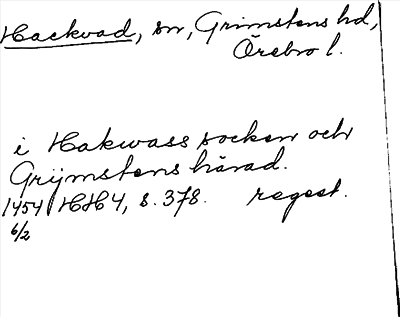 Hackvad, sn, Grimstens hd,
Örebro l.
i Hakwass socken och
Grijmstens härad.
1454 HH 4, s. 378. regest.
6/2